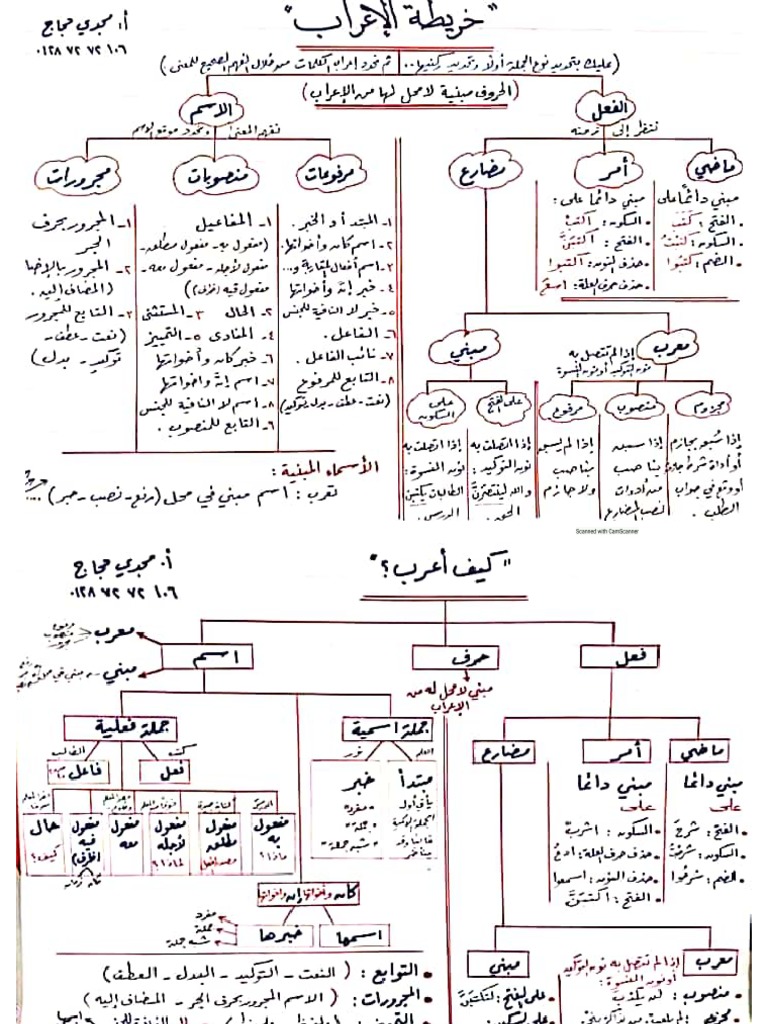 "خريطة الإعراب"
أ. مجدي حجاج
٠١٢٨ ٧٢ ٧٢ ١٠٦
(عليك بتحديد نوع الجملة أولًا وتحديد ركنيها.. ثم تحدد إعراب الكلمات من خلال الفهم الصحيح للمعنى)
(الحروف مبنية لا محل لها من الإعراب)
الفعل
ننظر إلى زمنه
ماضي
مبني دائمًا على
• الفتح: كتبَ
• السكون: كتبْتُ
• الضم: كتبُوا
أمر
مبني دائمًا على:
• السكون: اكتبْ
• الفتح: اكتبَنَّ
• حذف النون: اكتبوا
• حذف حرف العلة: اسعَ
مضارع
معرب
إذا لم تتصل به
نون التوكيد أو نون النسوة
مجزوم
إذا سُبق بجازم
أو أداة شرط جازمة
أو وقع في جواب
الطلب.
منصوب
إذا سبقه
ناصب
من أدوات
نصب المضارع
مرفوع
إذا لم يسبق
بناصب
ولا جازم
مبني
على الفتح
إذا اتصلت به
نون التوكيد:
والله لينتصرنَّ
الحق.
على السكون
إذا اتصلت به
نون النسوة:
الطالبات يكتبْنَ
الدرس.
الاسم
نفهم المعنى ونحدد موقع الاسم
مرفوعات
١- المبتدأ والخبر.
٢- اسم كان وأخواتها.
٣- اسم أفعال المقاربة و...
٤- خبر إنَّ وأخواتها
٥- خبر لا النافية للجنس
٦- الفاعل.
٧- نائب الفاعل.
٨- التابع للمرفوع
(نعت - عطف - بدل - توكيد)
منصوبات
١- المفاعيل
(مفعول به - مفعول مطلق -
مفعول لأجله - مفعول معه -
مفعول فيه (ظرف))
٢- الحال ٣- المستثنى
٤- المنادى ٥- التمييز
٦- خبر كان وأخواتها
٧- اسم إنَّ وأخواتها
٨- اسم لا النافية للجنس
٦- التابع للمنصوب.
مجرورات
١- المجرور بحرف
الجر
٢- المجرور بالإضافة
(المضاف إليه).
٣- التابع للمجرور
(نعت - عطف -
توكيد - بدل)
الأسماء المبنية:
تعرب: اسم مبني في محل (رفع - نصب - جر)
Scanned with CamScanner
"كيف أعرب؟"
أ. مجدي حجاج
٠١٢٨ ٧٢ ٧٢ ١٠٦
فعل
حرف
مبني لا محل له من
الإعراب
اسم
معرب
مبني
ماضي
مبني دائمًا
على
• الفتح: شرحَ
• السكون: شرحْتُ
• الضم: شرحُوا
أمر
مبني دائمًا
على
• السكون: اشربْ
• حذف حرف العلة: ادعُ
• حذف النون: اسمعوا
• الفتح: اكتبَنَّ
مضارع
جملة اسمية
مبتدأ
خبر
• مفرد
• جملة
• شبه جملة
جملة فعلية
فعل
فاعل
مفعول به ماذا؟
مفعول مطلق
مفعول لأجله لماذا؟
مفعول معه
مفعول فيه (ظرف)
زمان مكان
حال كيف؟
كان وأخواتها إن وأخواتها
اسمها
خبرها
مفرد
جملة
شبه جملة
معرب
إذا لم تتصل به نون التوكيد
أو نون النسوة:
• منصوب: لن يكذب
مبني
• على الفتح: لتكتبَنَّ
• على السكون:
• التوابع: (النعت - التوكيد - البدل - العطف)
• المجرورات: (الاسم المجرور بحرف الجر - المضاف إليه)